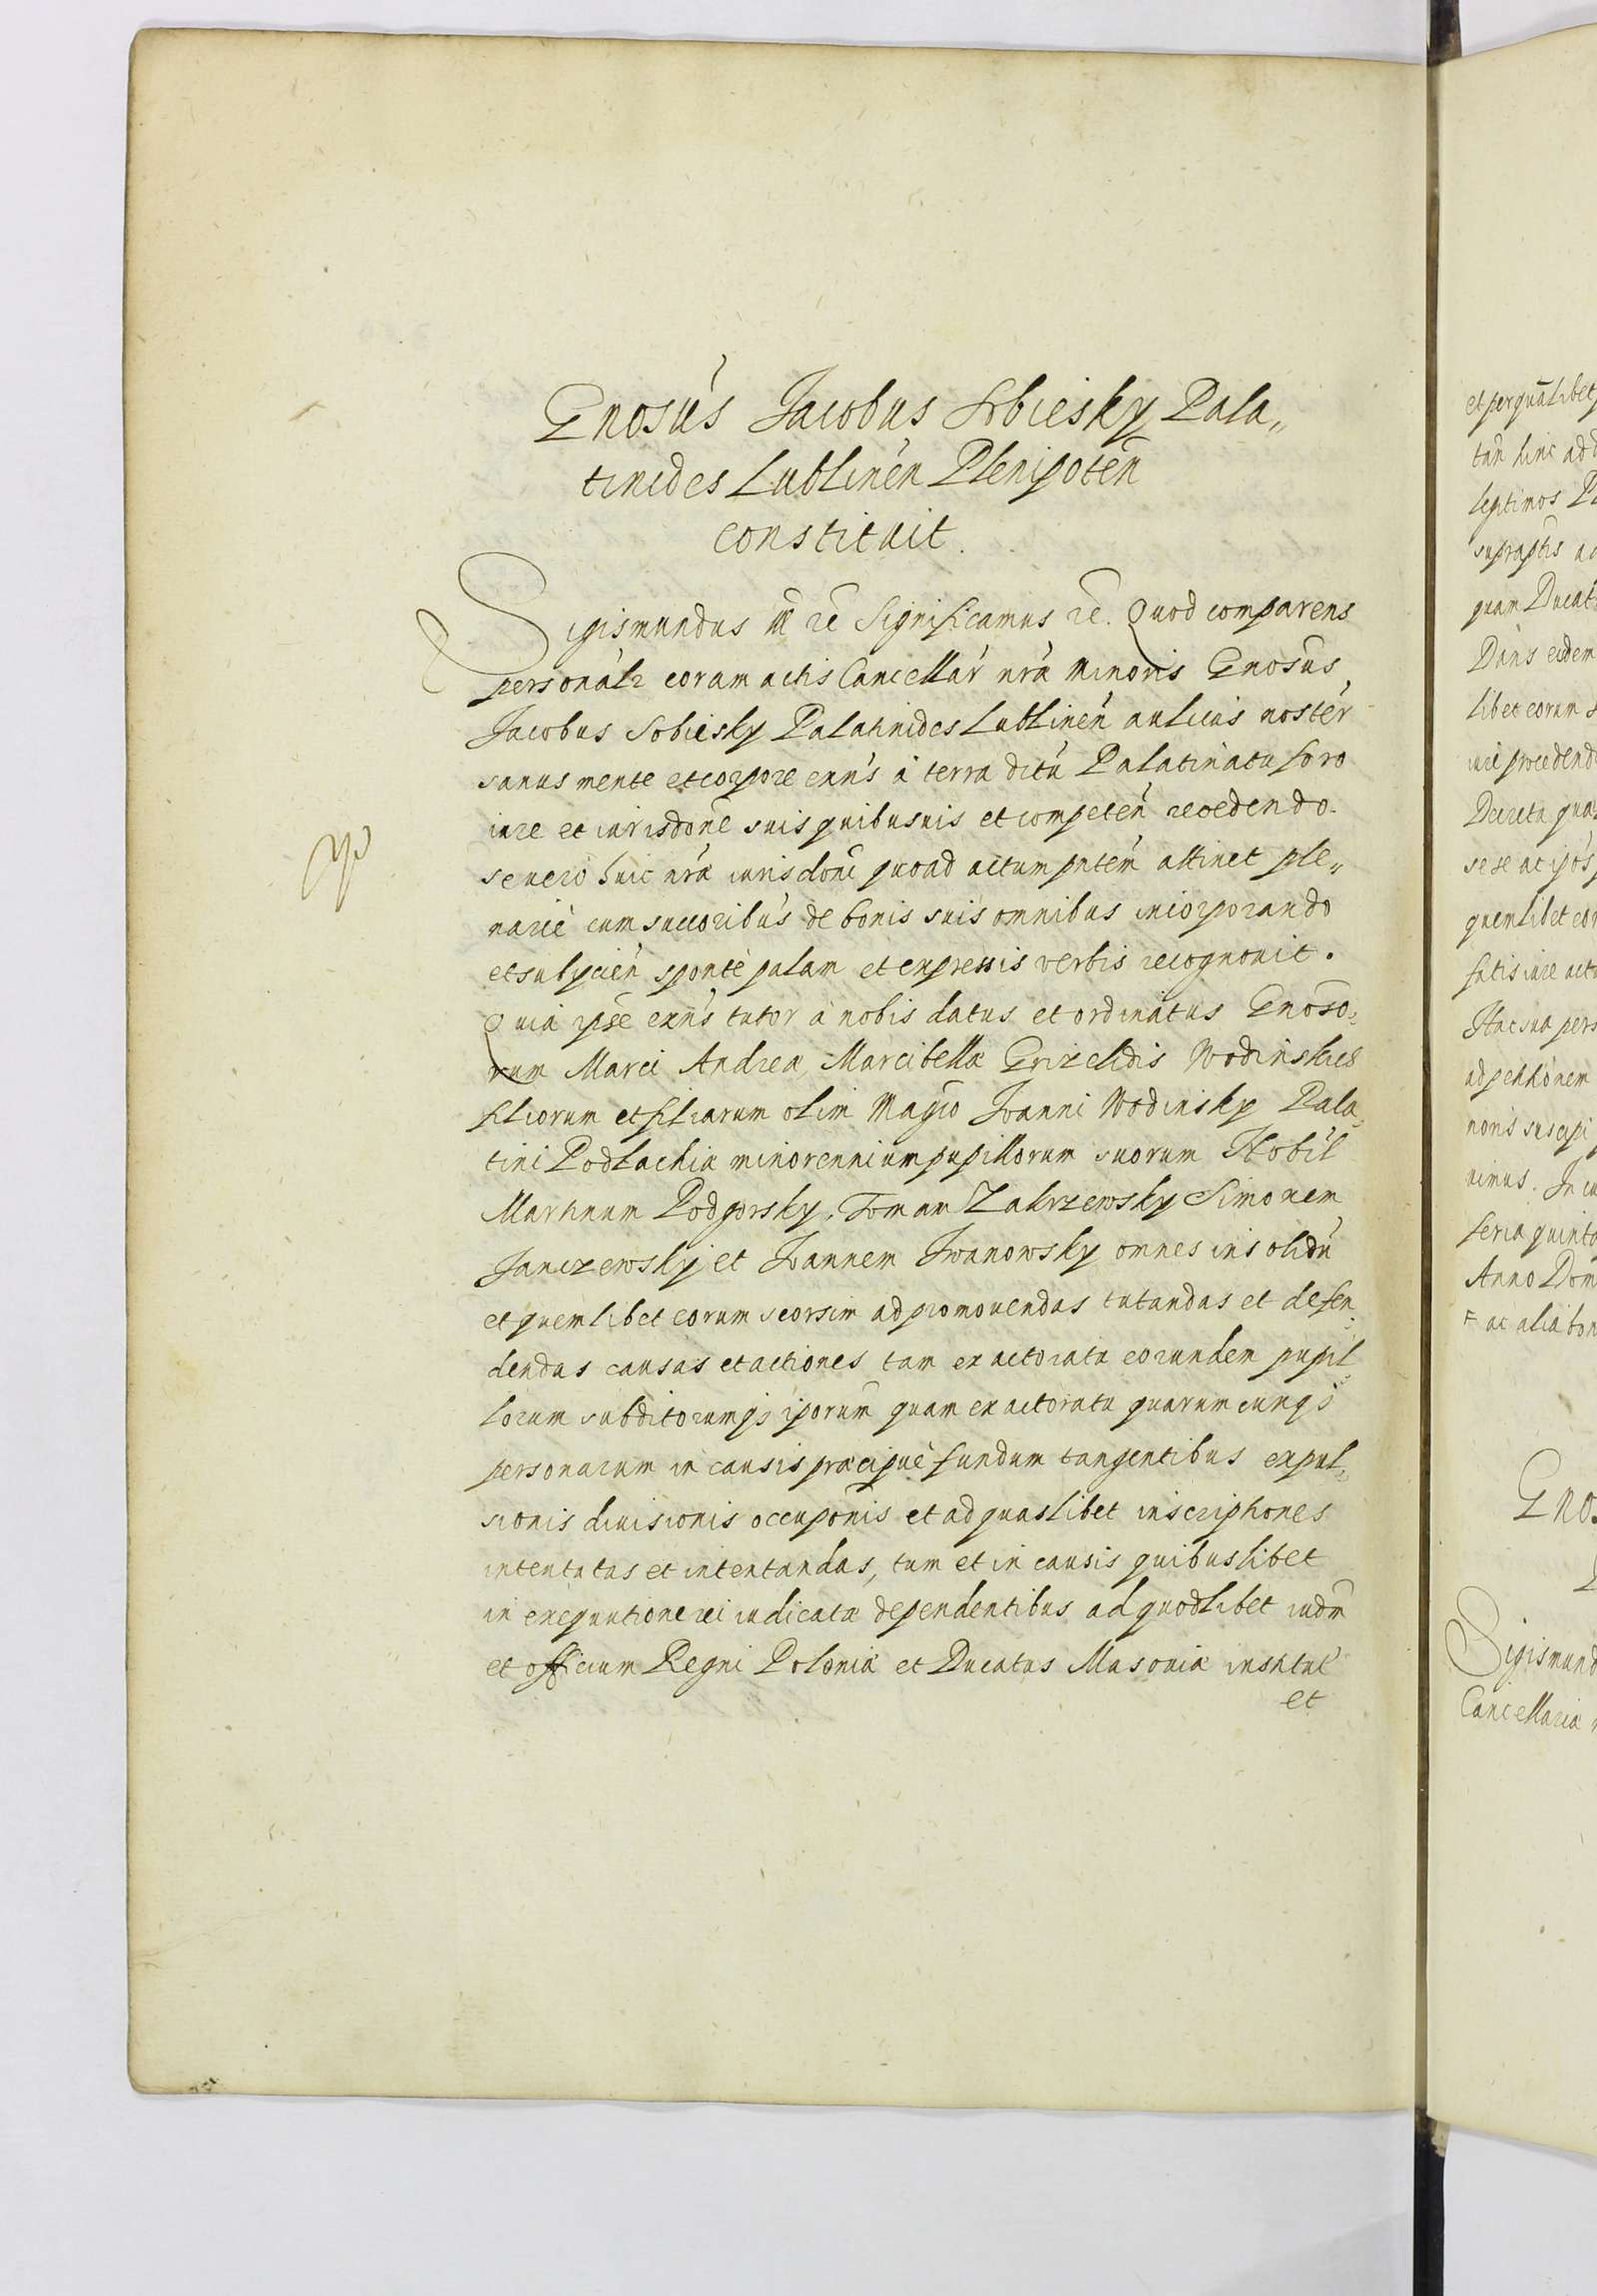 Gnosus Jacobus Sobiesky Pala„
tinides Lublinen Plenipoten
constituit.
Sigismundus III re Significamus re. Quod comparens
personalr coram actis Cancellar nra Minoris Gnosus
Jacobus Sobiesky Palatinides Lublinen aulicus noster
sanus mente et corpore exns à terra dictu Palatinatu foro
iure et iurisdone suis quibusuis et competen recedendo.
se vero huic nræ iurisdoni quoad actum pntem attinet ple„
narie cum succoribus de bonis suis omnibus incorporando
et subycien sponte palam et expressis verbis recognouit.
Quia ipse exns tutor à nobis datus et ordinatus Gnoso,
rum Marci Andreæ Marcibellæ Grizelidis Wodinskies
filiorum et filiarum olim Magco Joanni Wodinsky Pala,
tini Podlachiæ minorennium pupillorum suorum Nobil
Martinum Podgorsky, Toman Zakrzewsky Simonem
Janczewsky et Joannem Iwanowsky omnes in solidu
et quemlibet eorum seorsim ad promouendas tutandas et defen,
dendas causas et actiones tam ex actoratu eorundem pupil,
lorum subditorumqs iporum quam ex actoratu quarumcunqs
personarum in causis præcipue fundum tangentibus expul,
sionis diuisionis occuponis et ad quaslibet inscriptiones
intentatas et intentandas, tum et in causis quibuslibet
in exequutione rei iudicatæ dependentibus ad quodlibet iudm
et officium Regni Poloniæ et Ducatus Masouiæ institut
et
et per quālibet
tan hinc ad
legitimos Pl
supraptis ac
quam Ducat
Dans eidem
libet eorum
iure procedend
Decreta qua
se se ac ipos
quemlibet eor
satis iure act
Hac sua pers
ad petitionem
noris suscipi
uimus. In cu
feria quinta
Anno Dom
ac alia bon
Gno
Sigismund
Cancellaria